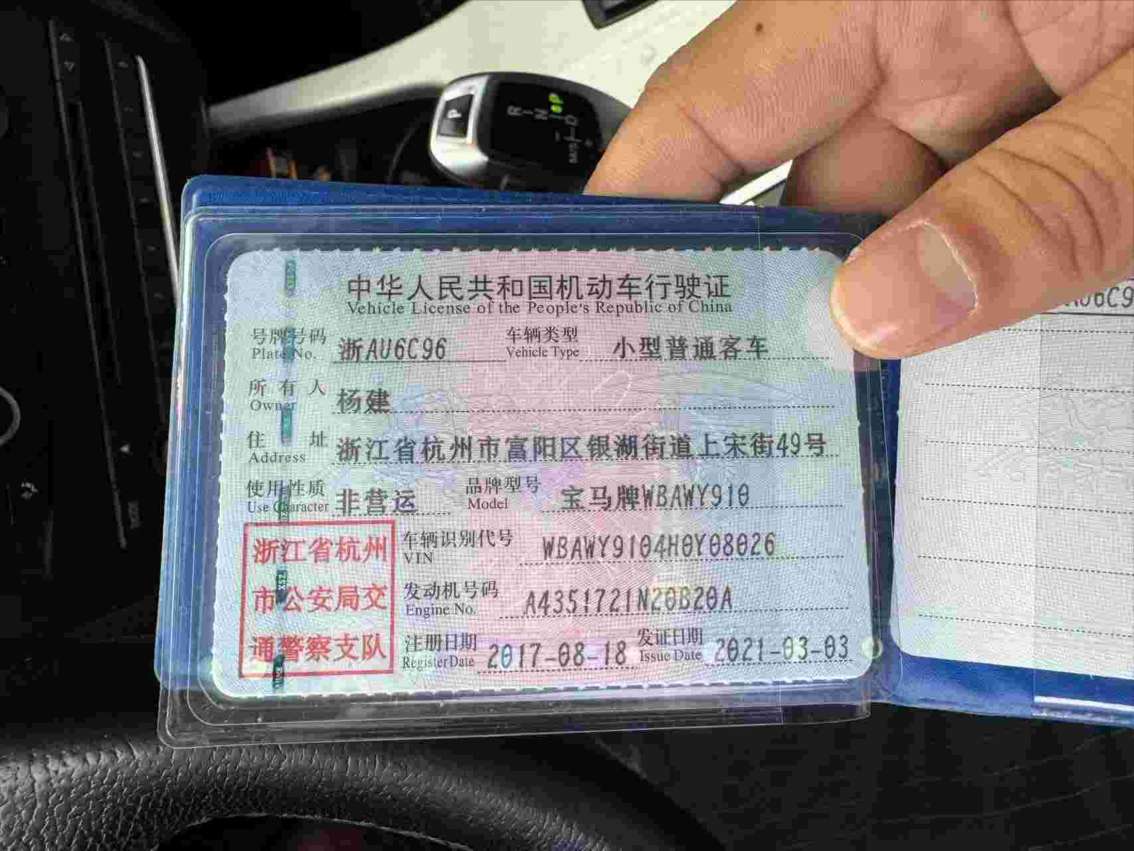 P
R
N
P
D
中华人民共和国机动车行驶证
Vehicle License of the People's Republic of China
号牌号码 浙AU6C96 车辆类型 小型普通客车
Plate No. Vehicle Type
所有人 杨建
Owner
住址 浙江省杭州市富阳区银湖街道上宋街49号
Address
使用性质 非营运 品牌型号 宝马牌WBAWY910
Use Character Model
浙江省杭州
市公安局交
通警察支队
车辆识别代号 WBAWY9104H0Y08026
VIN
发动机号码 A4351721N20B20A
Engine No.
注册日期 2017-08-18 发证日期 2021-03-03
Register Date Issue Date
AU6C9